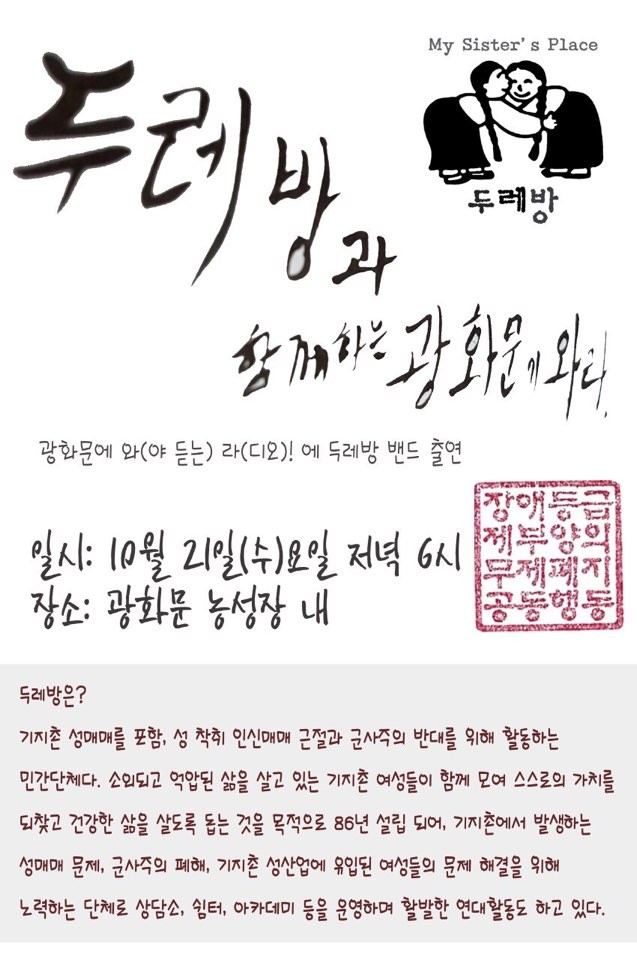 My Sister's Place
두레방
두레방과
함께하는 광화문에 와라.
광화문에 와(야 듣는) 라(디오)! 에 두레방 밴드 출연
일시: 10월 21일(수)요일 저녁 6시
장소: 광화문 농성장 내
장애등급
제부양의
무제폐지
공동행동
두레방은?
기지촌 성매매를 포함, 성 착취 인신매매 근절과 군사주의 반대를 위해 활동하는
민간단체다. 소외되고 억압된 삶을 살고 있는 기지촌 여성들이 함께 모여 스스로의 가치를
되찾고 건강한 삶을 살도록 돕는 것을 목적으로 86년 설립 되어, 기지촌에서 발생하는
성매매 문제, 군사주의 폐해, 기지촌 성산업에 유입된 여성들의 문제 해결을 위해
노력하는 단체로 상담소, 쉼터, 아카데미 등을 운영하며 활발한 연대활동도 하고 있다.